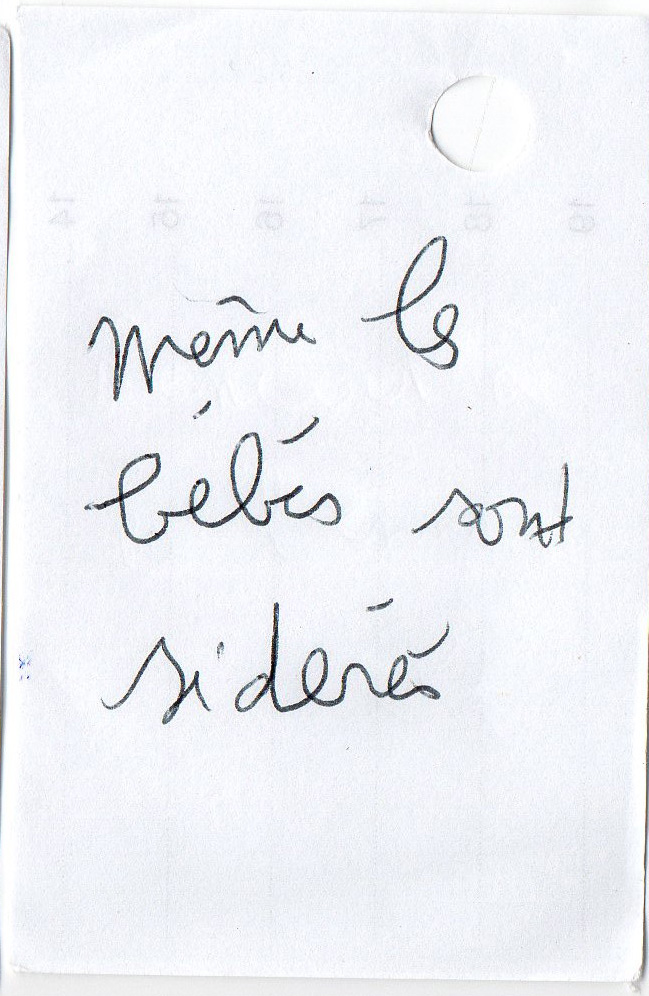 Même les
bébés sont
sidérés